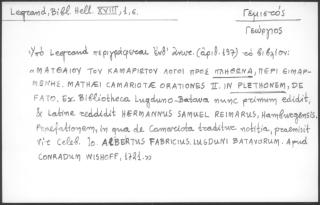 Legrand, Bibl. Hell. XVIII, 1, ε.
Γεμιστός
Γεώργιος
Ὑπὸ Legrand περιγράφεται ἐνθ' ἀνωτ. (ἀριθ. 197) τὸ βιβλίον:
«ΜΑΤΘΑΙΟΥ ΤΟΥ ΚΑΜΑΡΙΩΤΟΥ ΛΟΓΟΙ ΠΡΟΣ ΠΛΗΘΩΝΑ, ΠΕΡΙ ΕΙΜΑΡ-
ΜΕΝΗΣ. MATHÆI CAMARIOTÆ ORATIONES II. IN PLETHONEM, DE
FATO. Ex Bibliotheca Lugduno-Batava nunc primum edidit,
& Latine reddidit HERMANNUS SAMUEL REIMARUS, Hamburgensis,
Praefationem, in qua de Camariota traditur notitia, praemisit
vir Celeb. Io. ALBERTUS FABRICIUS. LUGDUNI BATAVORUM. Apud
CONRADUM WISHOFF, 1721.»